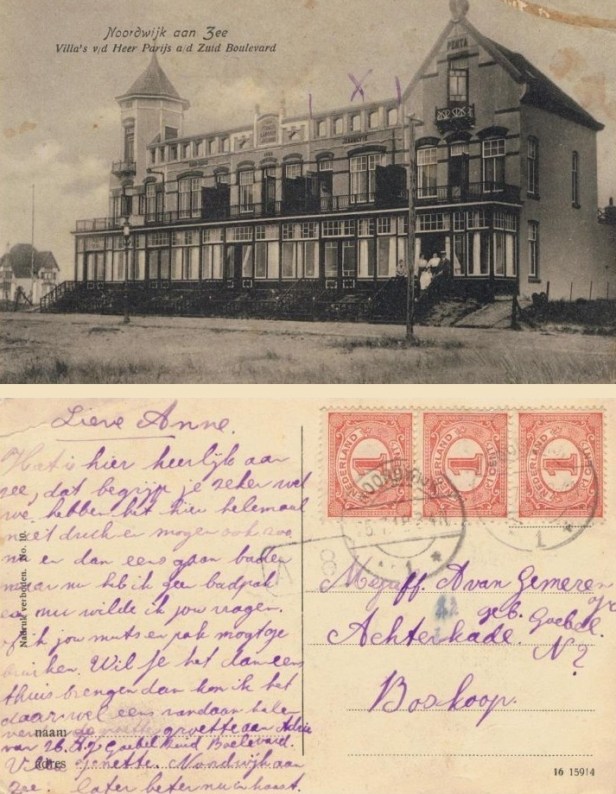 Noordwijk aan Zee
Villa's v/d Heer Parijs a/d Zuid Boulevard
PONTA
Lieve Anne.
Hat is hier heerlijk aan
zee, dat begrijp je zeker wel
we hebben het hier helemaal
niet druk en mogen ook zoo
nu en dan eens gaan baden
maar nu heb ik geen badpak
en nu wilde ik jou vragen.
of ik jou muts en pak mogt
. Wil je het dan eens
thuis brengen dan kan ik het
daar wel eens vandaan halen
groette aan Adrie
van
Boelevard.
Villa Jenette. Noordwijk aan
zee. later beter nu en haast.
naam
adres
Nadruk verboden. No. 10.
NEDERLAND 1 CENT
NEDERLAND 1 CENT
NEDERLAND 1 CENT
Mejuff. A van Gemeren
geb. Goebel
Achterkade.
N?
Boskoop.
16 15914